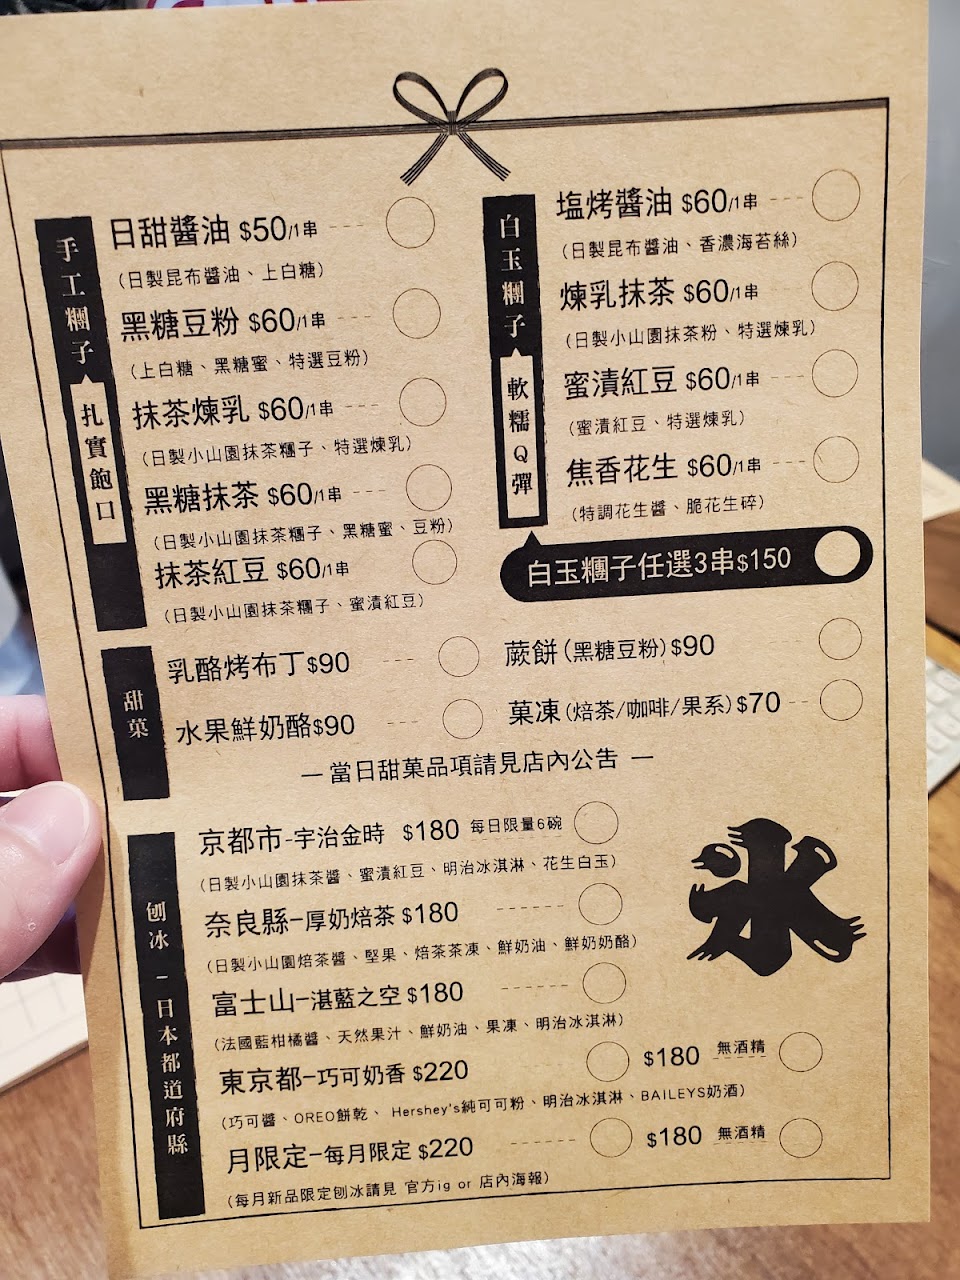 手工糰子
扎實飽口
日甜醬油 $50/1串
(日製昆布醬油、上白糖)
黑糖豆粉 $60/1串
(上白糖、黑糖蜜、特選豆粉)
抹茶煉乳 $60/1串
(日製小山園抹茶糰子、特選煉乳)
黑糖抹茶 $60/1串
(日製小山園抹茶糰子、黑糖蜜、豆粉)
抹茶紅豆 $60/1串
(日製小山園抹茶糰子、蜜漬紅豆)
白玉糰子
軟糯Q彈
塩烤醬油 $60/1串
(日製昆布醬油、香濃海苔絲)
煉乳抹茶 $60/1串
(日製小山園抹茶粉、特選煉乳)
蜜漬紅豆 $60/1串
(蜜漬紅豆、特選煉乳)
焦香花生 $60/1串
(特調花生醬、脆花生碎)
白玉糰子任選3串$150
甜菓
乳酪烤布丁$90
蕨餅(黑糖豆粉)$90
水果鮮奶酪$90
菓凍(焙茶/咖啡/果系)$70
— 當日甜菓品項請見店內公告 —
刨冰－日本都道府縣
京都市-宇治金時 $180 每日限量6碗
(日製小山園抹茶醬、蜜漬紅豆、明治冰淇淋、花生白玉)
奈良縣-厚奶焙茶 $180
(日製小山園焙茶醬、堅果、焙茶茶凍、鮮奶油、鮮奶奶酪)
富士山-湛藍之空 $180
(法國藍柑橘醬、天然果汁、鮮奶油、果凍、明治冰淇淋)
東京都-巧可奶香 $220 $180 無酒精
(巧可醬、OREO餅乾、Hershey's純可可粉、明治冰淇淋、BAILEYS奶酒)
月限定-每月限定 $220 $180 無酒精
(每月新品限定刨冰請見 官方ig or 店內海報)
氷